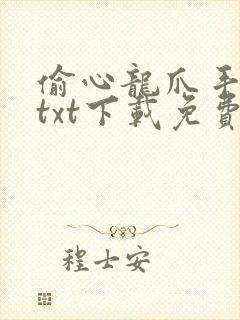 偷心龍爪手
txt下載免費
程士安